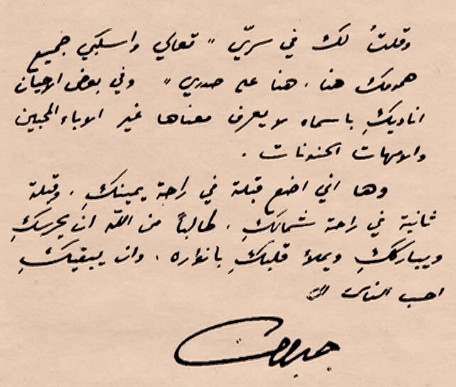 وقلتُ لك في سرّي " تعالي واسكبي جميع
همومك هنا، هنا على صدري " وفي بعض الاحيان
اناديكِ باسماء لا يعرف معناها غير الاباء المحبين
والامهات الحنونات.
وها اني اضع قبلة في راحة يمينكِ، وقبلة
ثانية في راحة شمالكِ، طالباً من الله ان يحرسكِ
ويبارككِ ويملأ قلبكِ بانواره، وان يبقيكِ
احب الناس
جبران